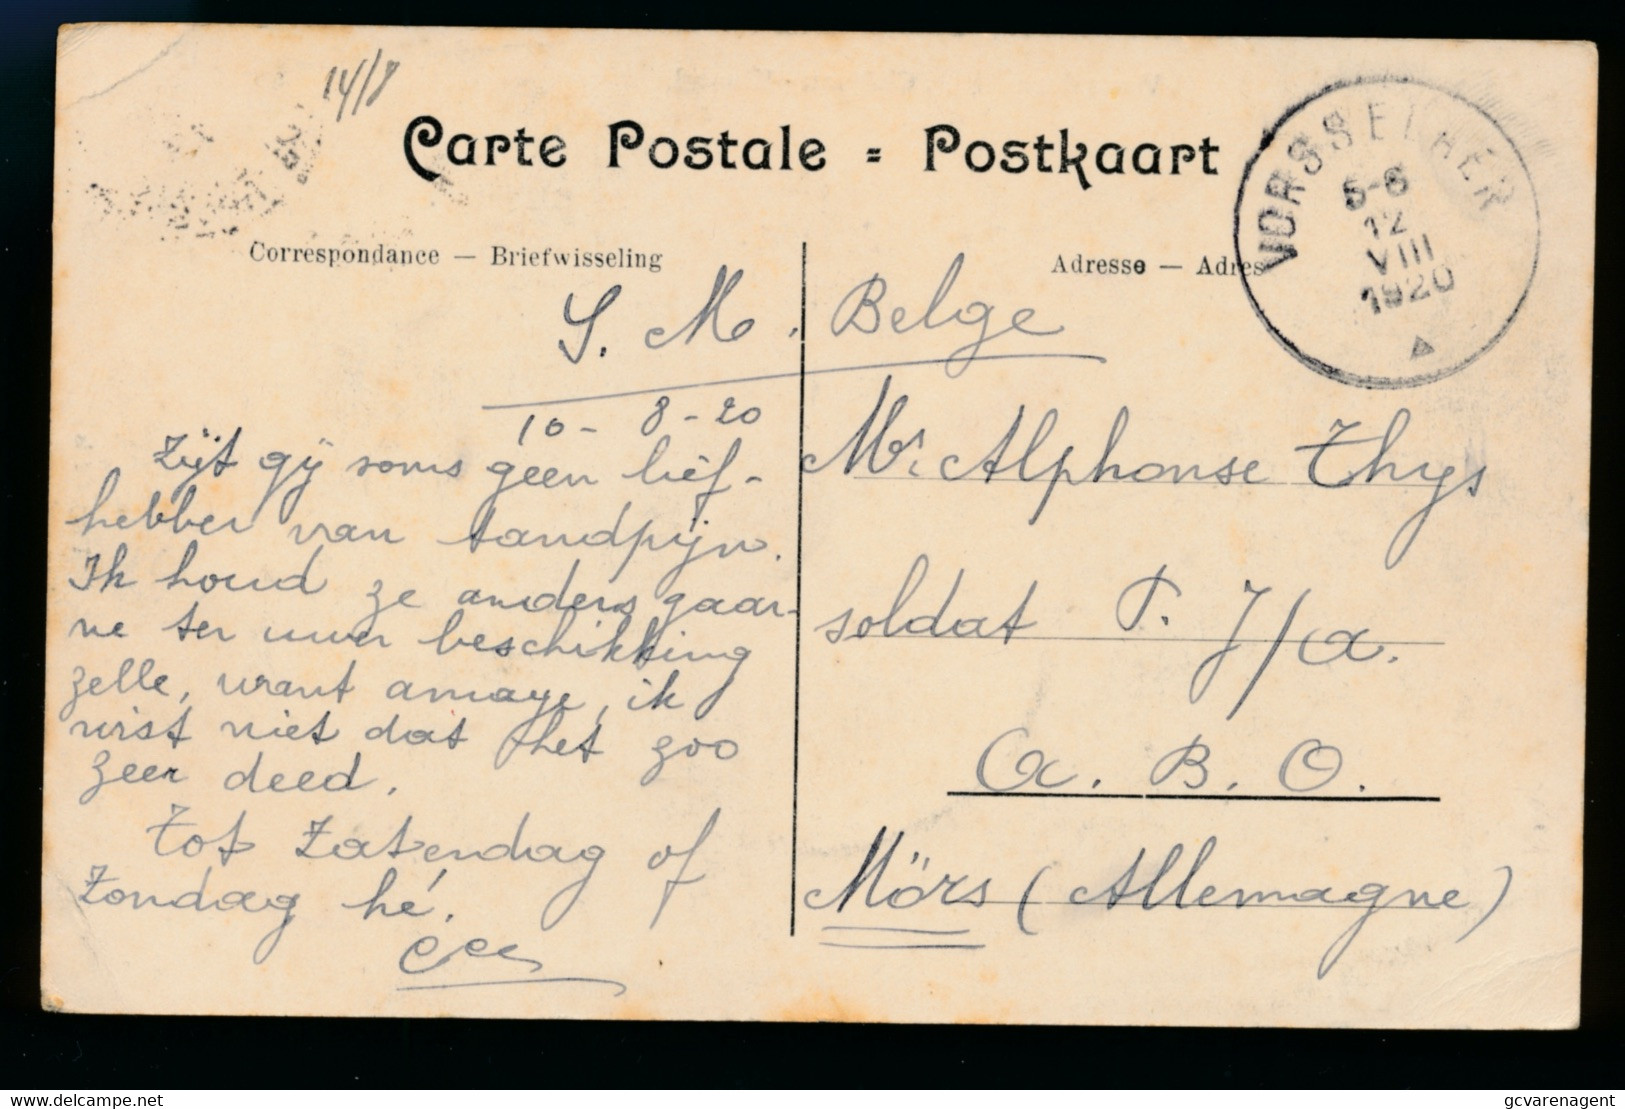 14/8
Carte Postale = Postkaart
Correspondance — Briefwisseling
Adresse — Adres
VORSSELAER
5-6
12
VIII
1920
S. M. Belge
10 - 8 - 20
Zijt gij soms geen lief-
hebber van tandpijn.
Ik houd ze anders gaar-
ne ter uwer beschikking
zelle, want amaye, ik
wist niet dat het zoo
zeer deed.
Tot Zatendag of
Zondag hé.
Mr. Alphonse Thys
soldat T. J/a.
A. B. O.
Mörs (Allemagne)
www.delcampe.net
gcvarenagent